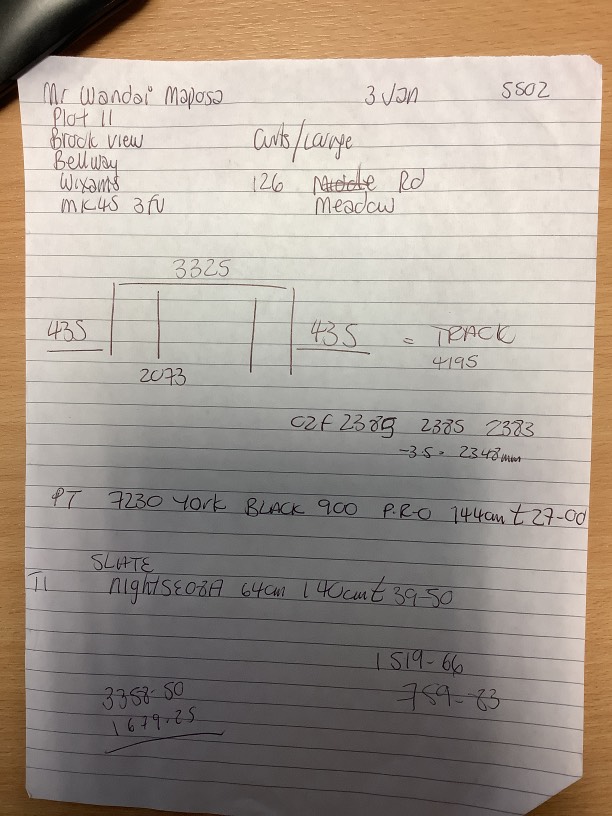 Mr Wandai Maposa 3 Jan SS02
Plot 11
Brook view Curts/Large
Bellway
Wixams 126 Rd
MK45 3fu Meadow
3325
435 435 = TRACK
4195
2073
C2F 2389 2385 2383
-35. 2348mm
PT 7230 York BLACK 900 P.R.O 144cm £27-00
SLATE
64cm 140cm £39-50
1519-66
3358-50 759-83
1679.25